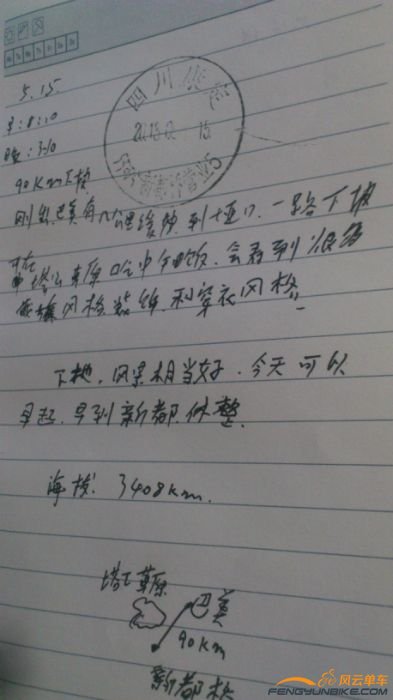 5.15
四川康定
2013.05.15
早:8:10
晚:3:10
90km下坡
刚出巴美有几公里缓坡到垭口,一路下坡
在塔公草原吃中午饭,会看到很多
风格装饰,和穿衣风格
下坡,风景相当好,今天可以
早起,早到新都休整
海拔:3408km.
塔公草原
巴美
90km
新都桥
风云单车
FENGYUNBIKE.COM